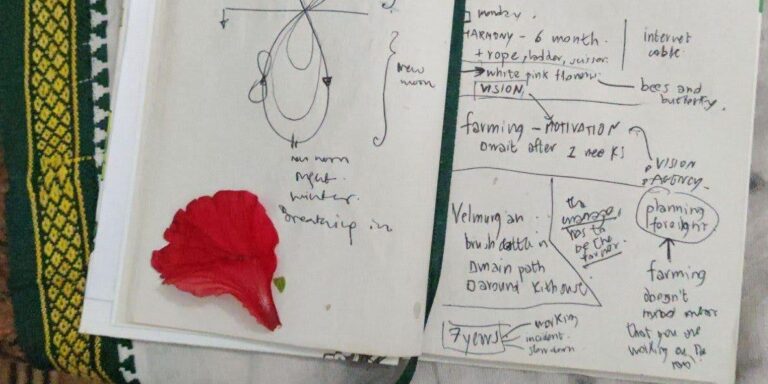 new
moon
new moon
night
winter
breathing in
monday.
HARMONY - 6 month.
+ rope, ladder, scissor.
internet
cable.
white pink flower.
bees and
butterfly.
VISION
farming - MOTIVATION
await after 2 weeks
VISION
AGENCY
Velmurgan
brush
main path
around
the
manager
has to
be the
farmer.
planning
foresight
farming
doesn't
that you are
working on the
7 years
working
incident
slow down